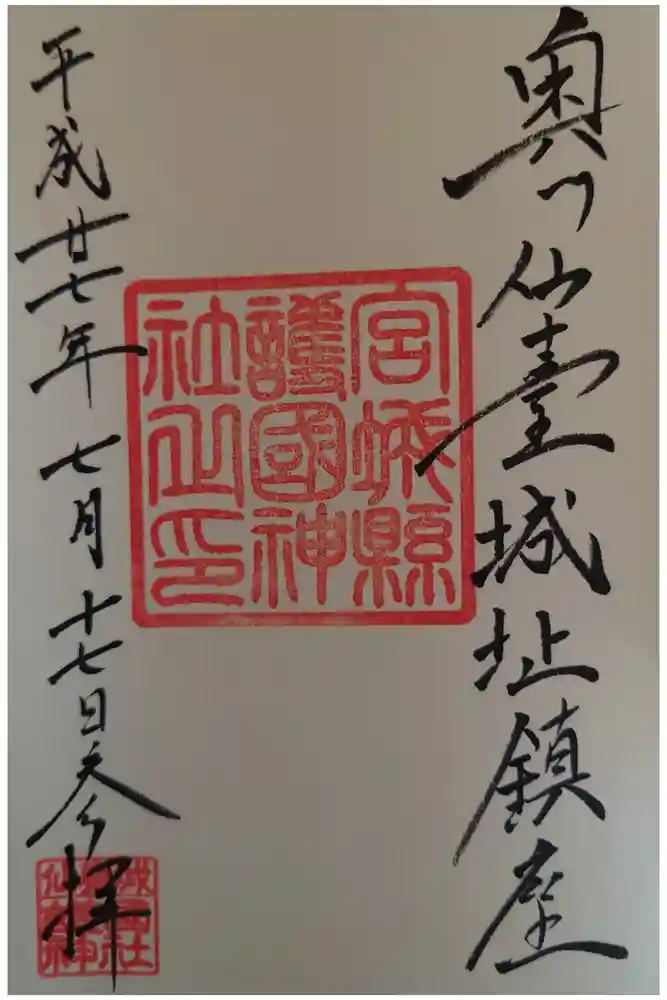 奥州仙臺城址鎮座
宮城縣
護國神
社之印
平成廿七年七月十七日参拝